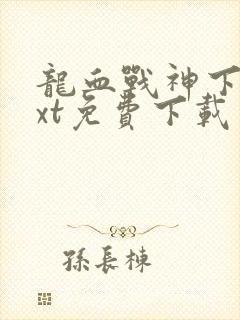 龍血戰神下
xt免費下載
孫長棟